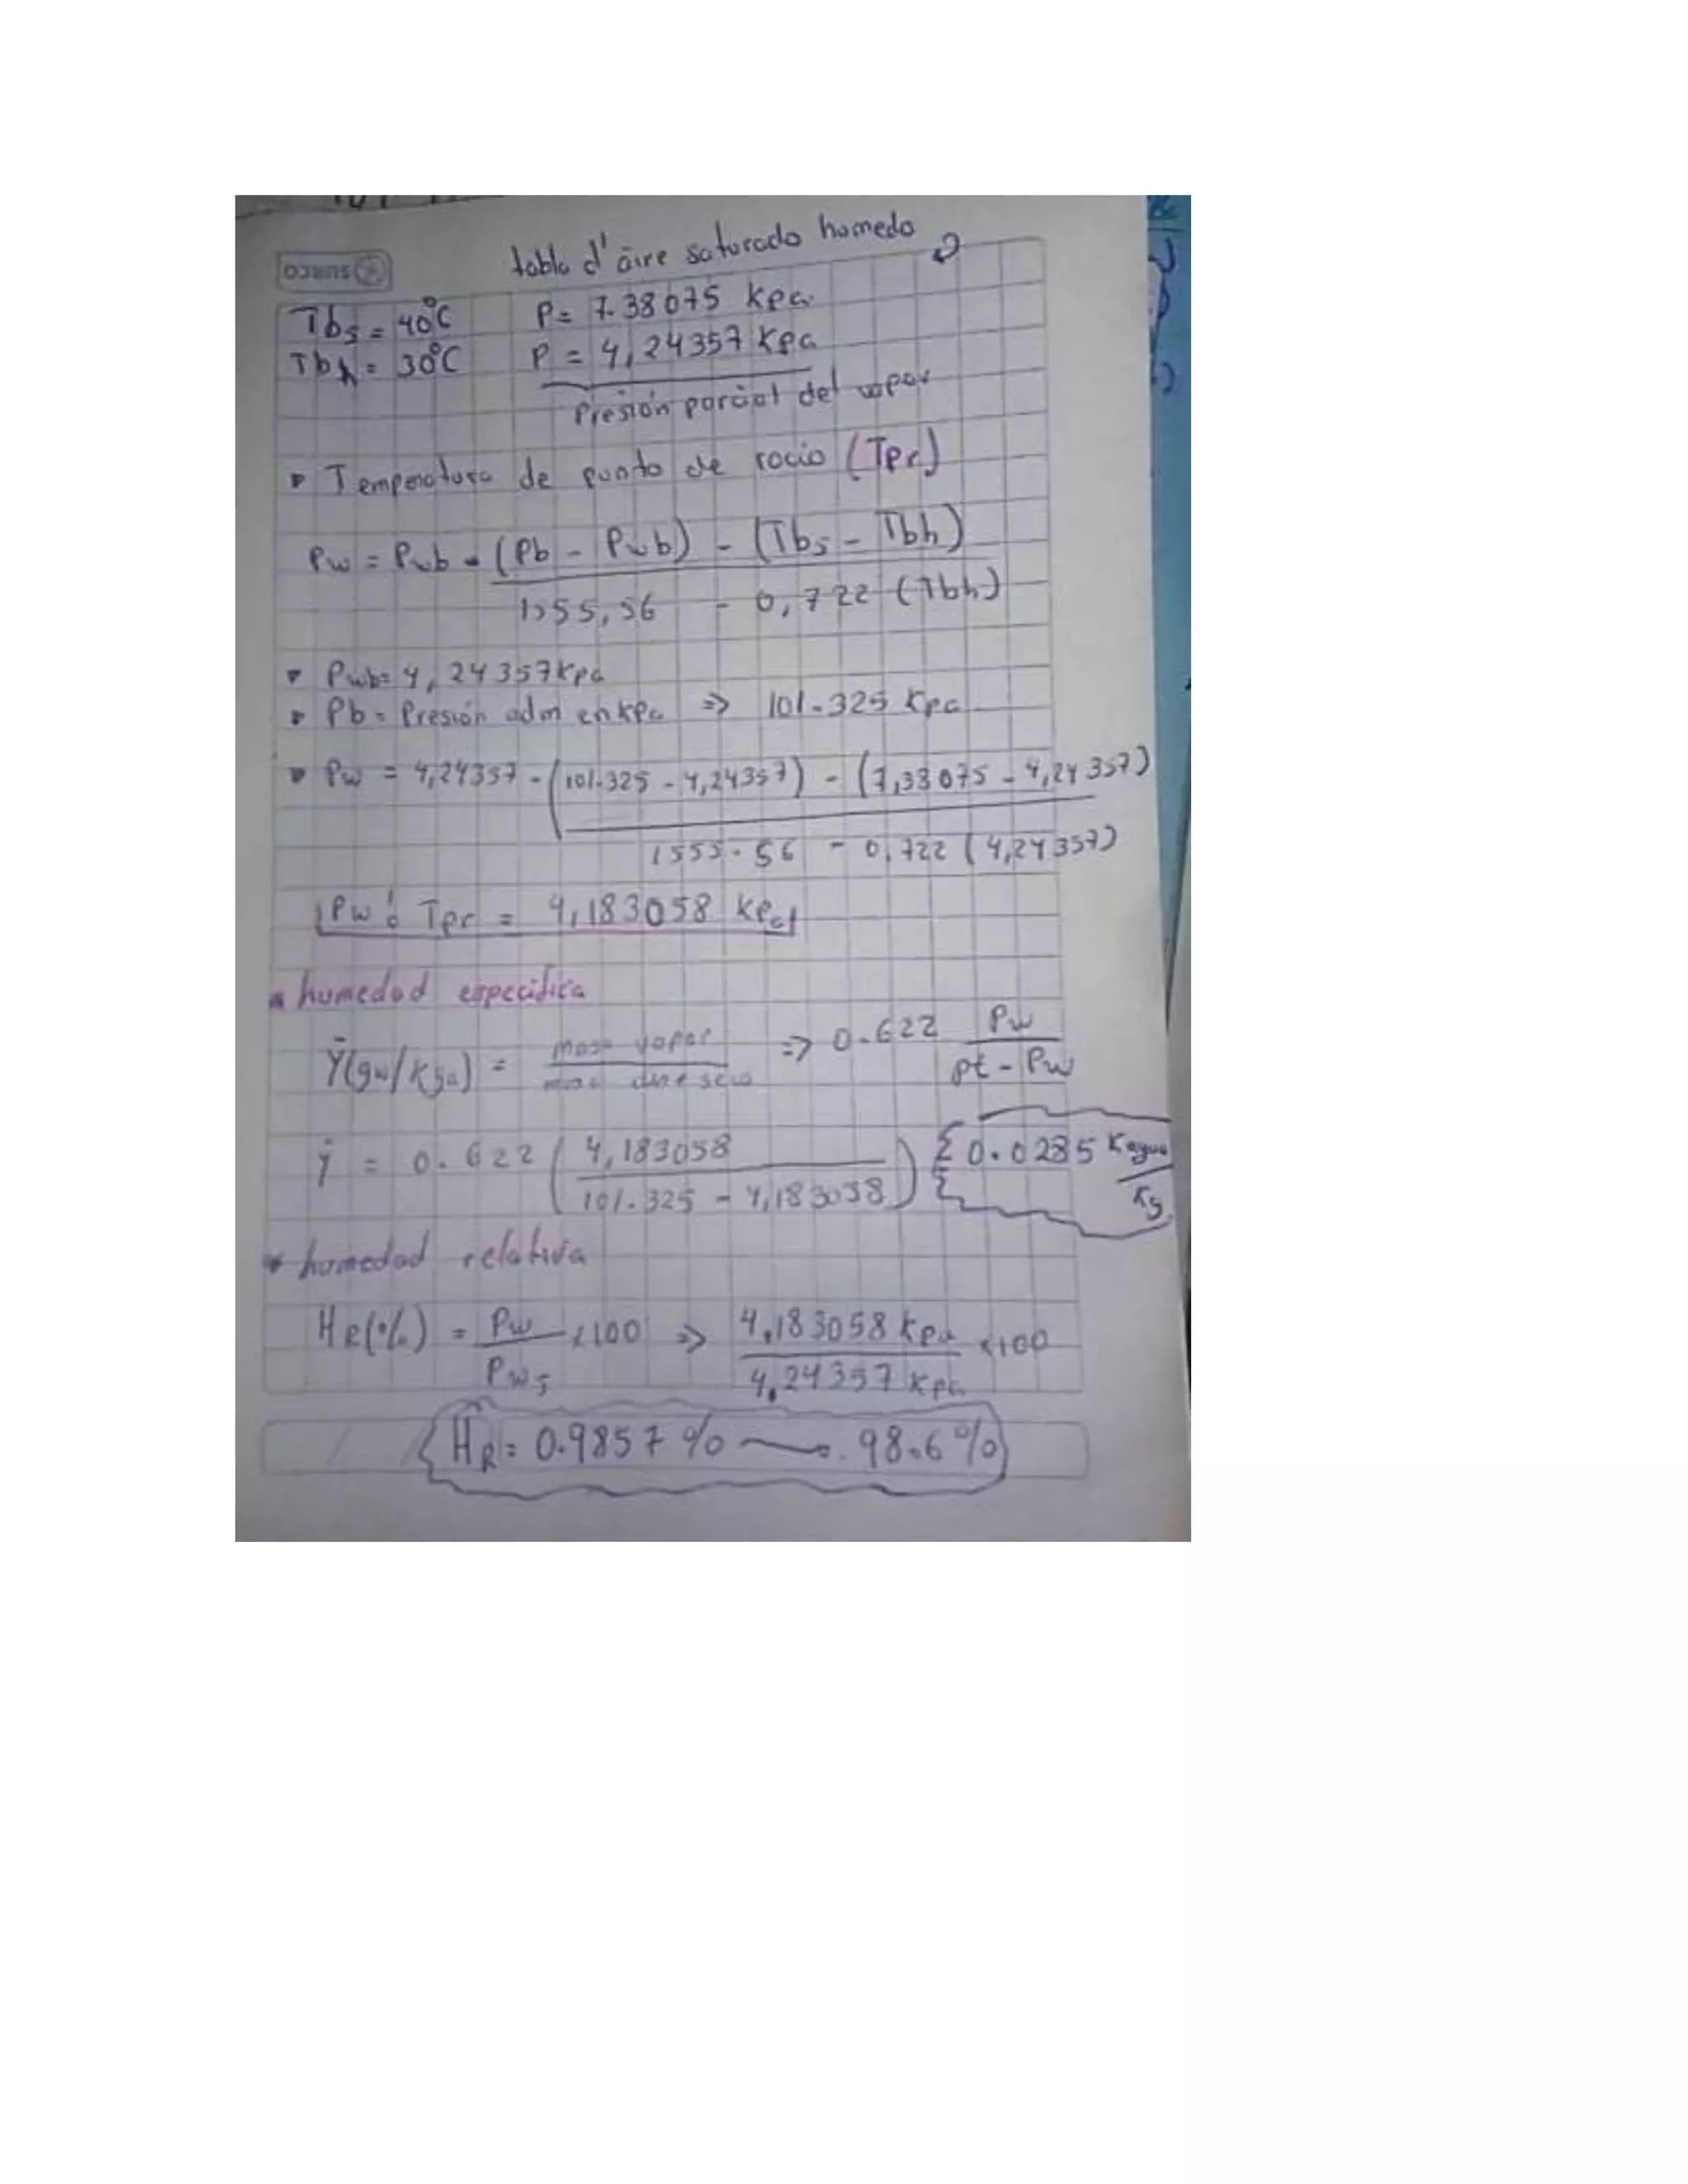 tabla d' aire saturado humedo
SURCO
Tbs = 40°C P = 7.38075 Kpa
Tbh = 30°C P = 4,24357 Kpa
Presión parcial del vapor
Temperatura de punto de rocio (Tpr)
Pw = Pwb - (Pb - Pwb) - (Tbs - Tbh)
1555,56 - 0,722 (Tbh)
Pwb = 4,24357 Kpa
Pb = Presión adm en KPa ⇒ 101.325 Kpa
Pw = 4,24357 - (101.325 - 4,24357) - (7,38075 - 4,24357)
1555.56 - 0,722 (4,24357)
Pw ó Tpr = 4,183058 Kpa
humedad especifica
Ȳ(gw/Kga) = masa vapor ⇒ 0.622 Pw
masa aire seco pt - Pw
Ȳ = 0.622 ( 4,183058 ) 0.0285 Kagua
101.325 - 4,183058 Kg
humedad relativa
HR(%) = Pw x100 ⇒ 4,183058 Kpa x100
Pws 4,24357 Kpa
HR = 0.9857 % 98.6 %